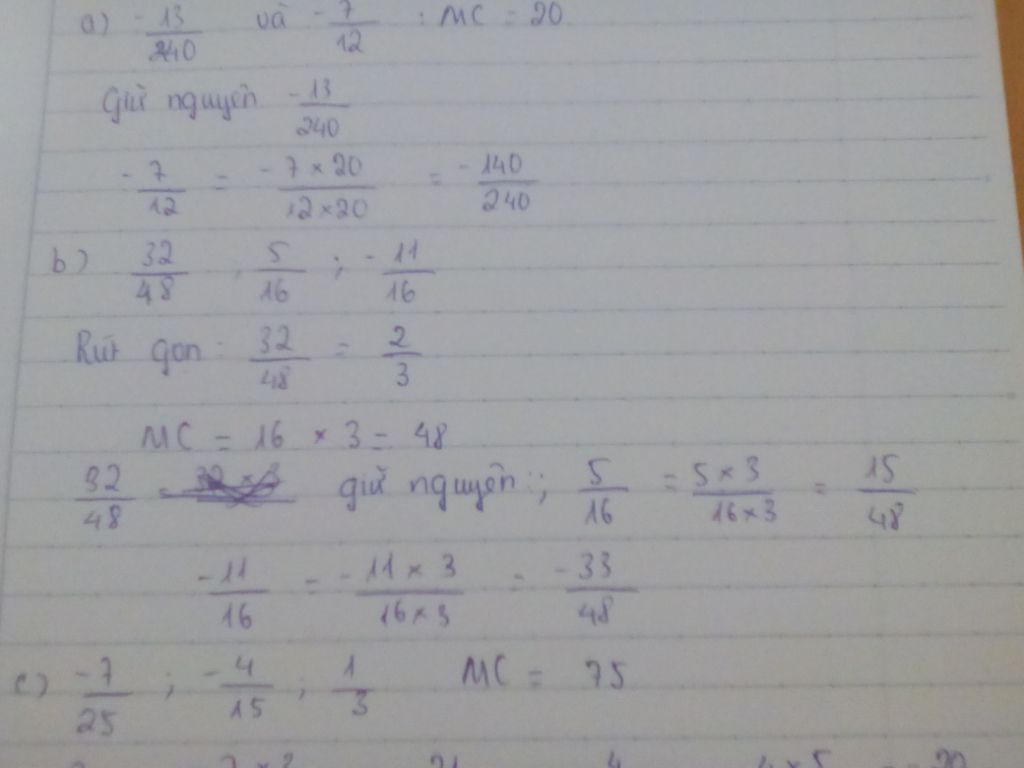 a) -13/240 và -7/12 : MC = 20
Giữ nguyên -13/240
-7/12 = -7 × 20/12 × 20 = -140/240
b) 32/48 , 5/16 ; -11/16
Rút gọn : 32/48 = 2/3
MC = 16 × 3 = 48
32/48 giữ nguyên ; 5/16 = 5 × 3/16 × 3 = 15/48
-11/16 = -11 × 3/16 × 3 = -33/48
c) -7/25 ; -4/15 ; 1/3 MC = 75